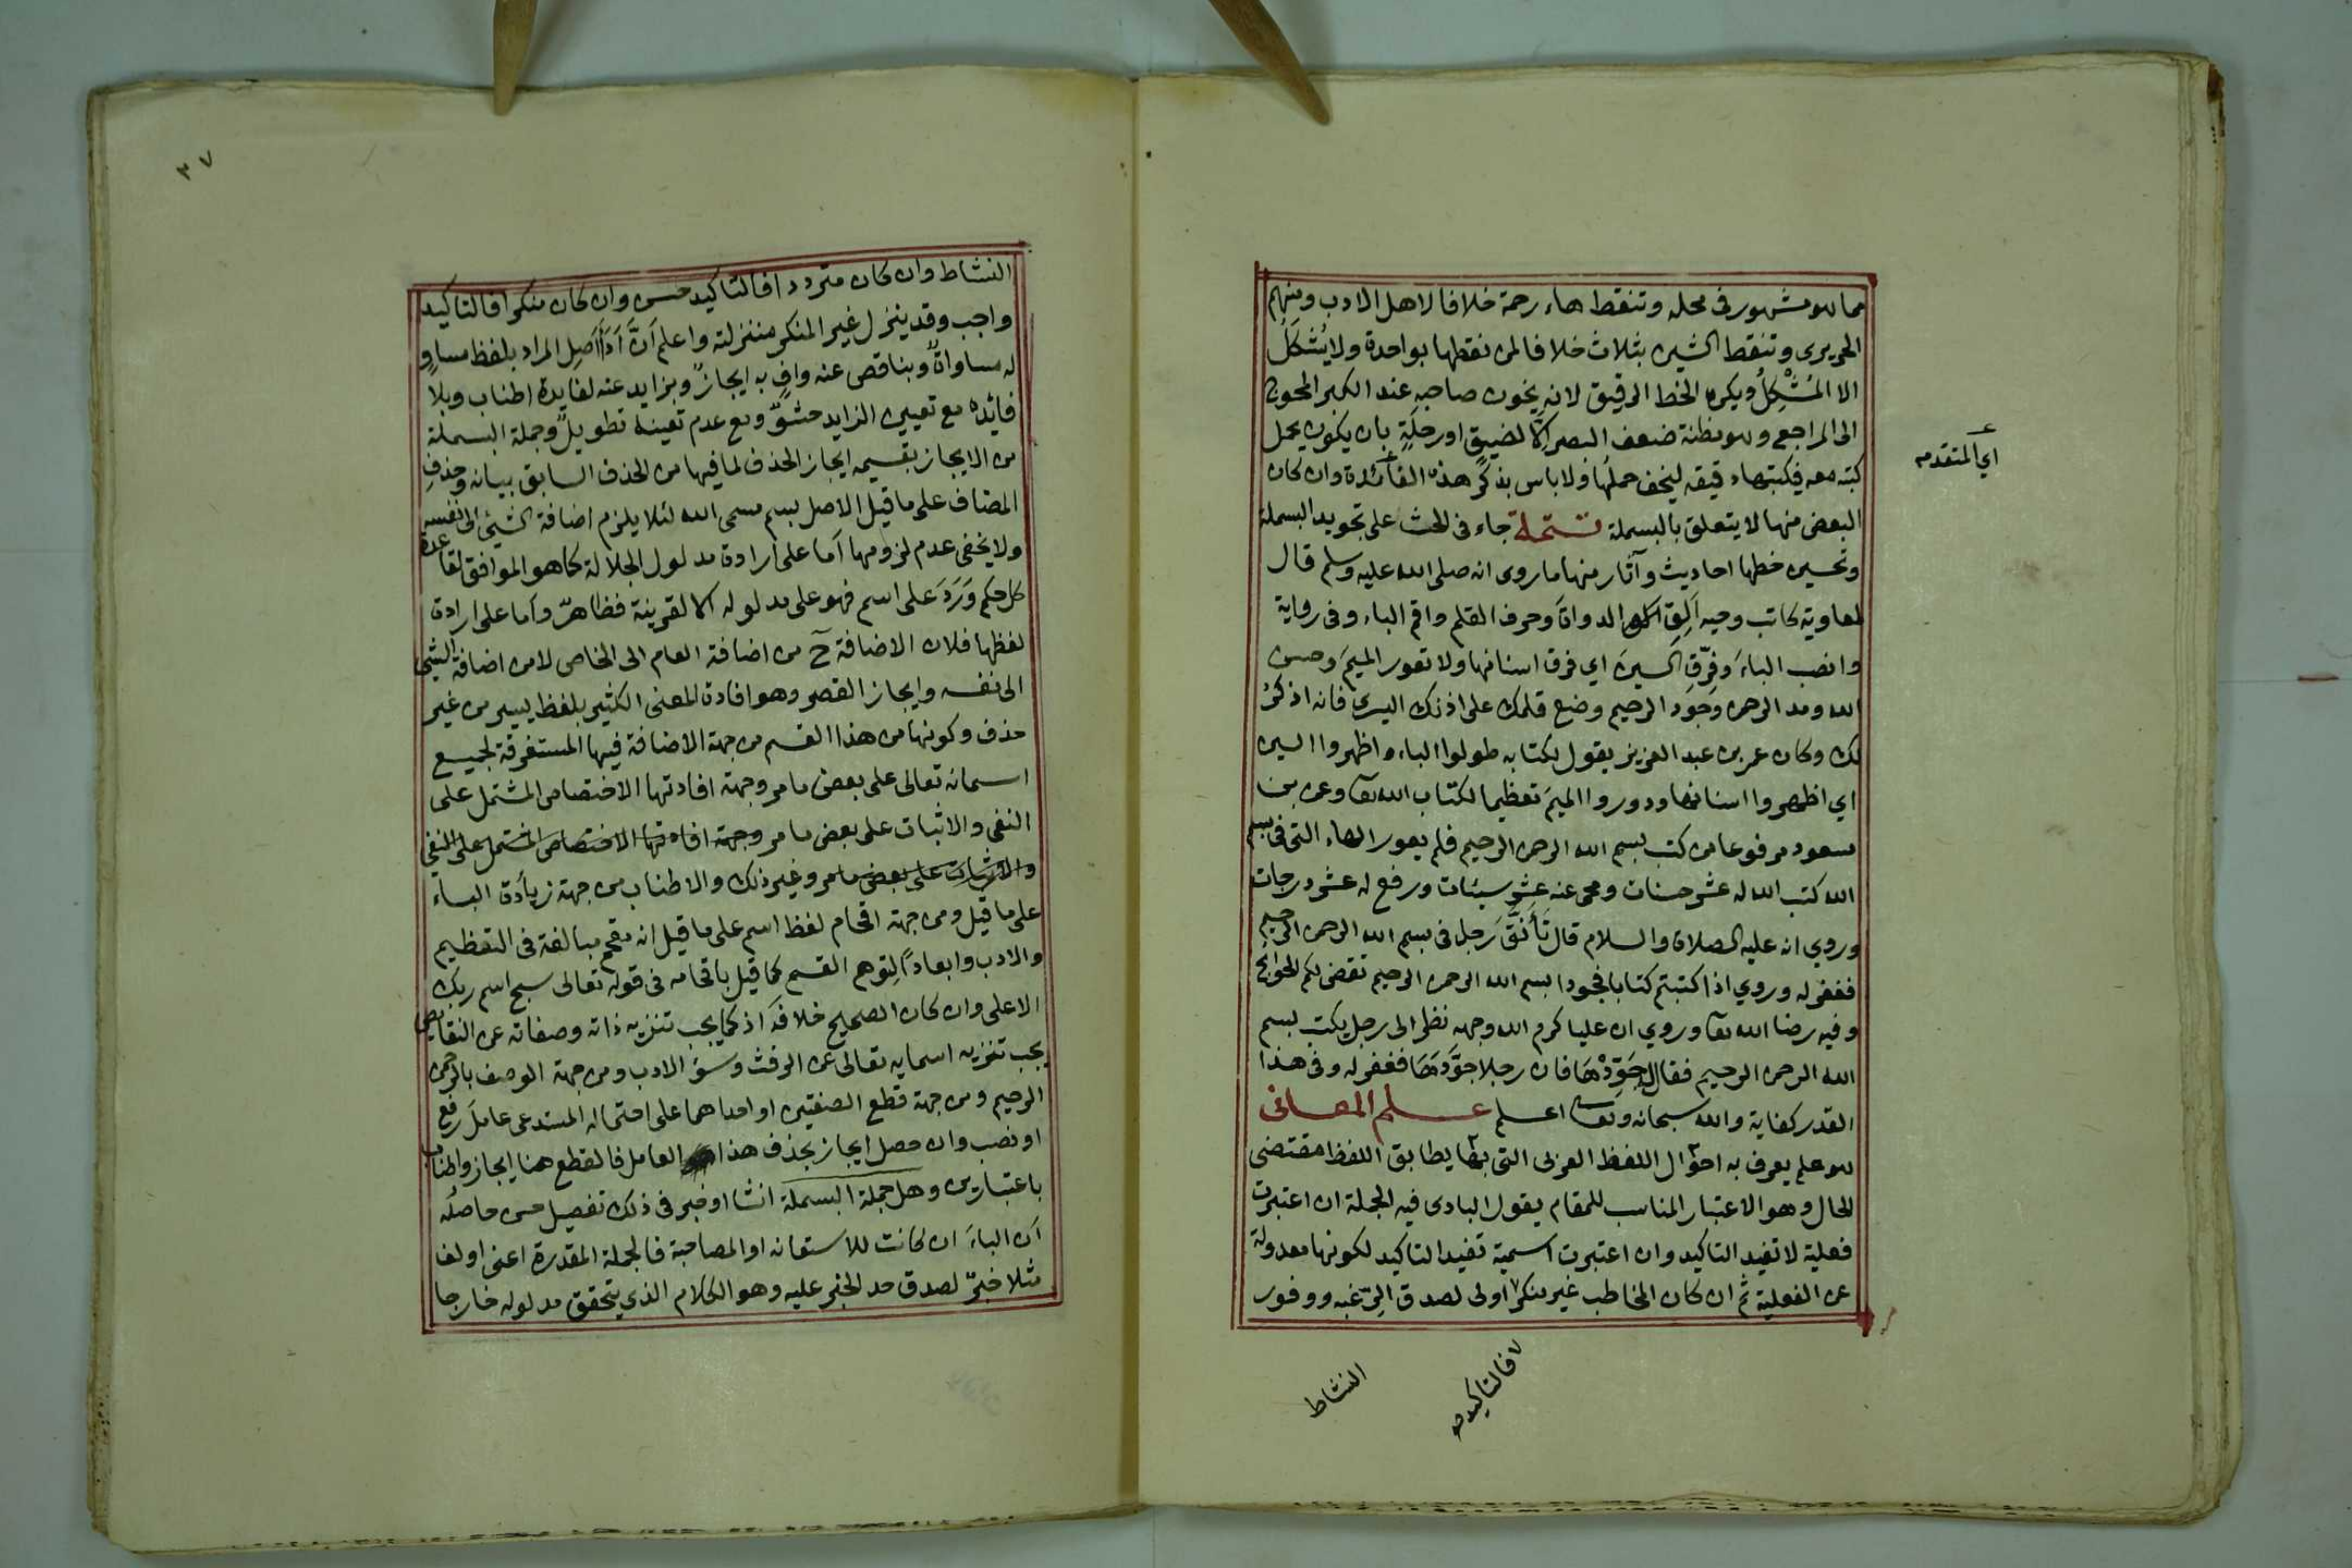 مما هو مشهور في محله وتنقط هاء رحمة خلافا لاهل الادب ومنهم
الحريرى وتنقط الشين بثلاث خلافا لمن نقطها بواحدة ولا يُشْكَلُ
الا المُشْكِلُ ويكره الخط الرقيق لانه يخون صاحبه عند الكبر المحوج
الى المراجع وهو مظنة ضعف البصر الا لضيق او رحلةٍ بان يكون يحمل
كتبه معه فيكتبها دقيقه ليخف حملها ولا باس بذكر هذه الفائدة وان كان
اي المتقدمه
البعض منها لا يتعلق بالبسملة تتمة جاء في الحث على تجويد البسملة
وتحسين خطها احاديث وآثار منها ما روى انه صلى الله عليه وسلم قال
لمعاوية كاتب وحيه اَلِقِ الدواة وحرف القلم واقم الباء وفى رواية
وانصب الباءَ وفَرِّقِ السينَ اي فرق اسنانها ولا تعور الميمَ وحسن
الله ومد الرحمن وجَود الرحيم وضع قلمك على اذنك اليسرى فانه اذكرُ
لك وكان عمر بن عبد العزيز يقول لكتابه طولوا الباء واظهروا السين
اي اظهروا اسنانها ودوروا الميمَ تعظيما لكتاب الله تعا وعن بن
مسعود مرفوعا من كتب بسم الله الرحمن الرحيم فلم يعور الهاء التى فى بسم
الله كتب الله له عشر حسنات ومحى عنه عشر سيئات ورفع له عشر درجات
وروي انه عليه الصلاة والسلام قال تَأَنَّقَ رَجل فى بسم الله الرحمن الرحيم
فغفر له وروي اذا كتبتم كتابا فجودا بسم الله الرحمن الرحيم تقضى لكم الحوائج
وفيه رضا الله تعا وروي ان عليا كرم الله وجهه نظر الى رجل يكتب بسم
الله الرحمن الرحيم فقال جَوِّدْهَا فان رجلا جوَّدَهَا فغفر له وفى هذا
القدر كفاية والله سبحانه وتعا اعلم علم المعانى
هو علم يعرف به احوال اللفظ العربى التى بها يطابق اللفظ مقتضى
الحال وهو الاعتبار المناسب للمقام يقول البادى فيه الجملة ان اعتبرت
فعلية لا تفيد التاكيد وان اعتبرت اسمية تفيد التاكيد لكونها معدولة
عن الفعلية ثم ان كان المخاطب غير منكر اولى لصدق الرغبه ووفور
فالتاكيد
النشاط
٣٧
النشاط وان كان مترددا فالتاكيد حسن وان كان منكرا فالتاكيد
واجب وقد ينزل غير المنكر منزلته واعلم اَنَّ اَداَ اَصِل المراد بلفظ مساوٍ
له مساواةٌ وبناقص عنه وافٍ به ايجازٌ وبزايد عنه لفايدة اطناب وبلا
فائده مع تعيين الزايد حشوٌّ ومع عدم تعينه تطويلٌ وجملة البسملة
من الايجاز بقسيمه ايجاز الحذف لما فيها من الحذف السابق بيانه وحذفِ
المضاف على ما قيل الاصل بسم مسمى الله لئلا يلزم اضافة الشيئ الى نفسه
ولا يخفى عدم لزومها اَما على ارادة مدلول الجلالة كما هو الموافق لقاعدة
كل حكم وَرَدَ على اسم فهو على مدلوله الا لقرينة فظاهرٌ وأما على ارادة
لفظها فلان الاضافة حٓ من اضافة العام الى الخاص لا من اضافة الشيئ
الى نفسه وايجاز القصر وهو افادة المعنى الكثير بلفظ يسير من غير
حذف وكونها من هذا القسم من جهة الاضافة فيها المستغرقة لجميع
اسمائه تعالى على بعض ما مر وجهة افادتها الاختصاص المشتمل على
النفى والاثبات على بعض ما مر وجهة افادتها الاختصاص المشتمل على النفي
والاثبات على بعض ما مر وغير ذلك والاطناب من جهة زيادة الباء
على ما قيل ومن جهة اقحام لفظ اسم على ما قيل انه مقحم مبالغة فى التعظيم
والادب وابعاداً لتوهم القسم كما قيل باقحامه فى قوله تعالى سبح اسم ربك
الاعلى وان كان الصحيح خلافه اذ كما يجب تنزيه ذاته وصفاته عن النقايص
يجب تنزيه اسمايه تعالى عن الرفث وسؤ الادب ومن جهة الوصف بالرحمن
الرحيم ومن جهة قطع الصفتين او احداهما على احتماله المستدعى عاملَ رفع
او نصب وان حصل ايجاز بحذف هذا العامل فالقطع هنا ايجاز واطناب
باعتبارين وهل جملة البسملة انشا او خبر فى ذلك تفصيل حسن حاصله
اَن الباءَ ان كانت للاستعانه او المصاحبة فالجملة المقدرة اعنى اولف
مثلا خبرٌ لصدق حد الخبر عليه وهو الكلام الذي يتحقق مدلوله خارجا